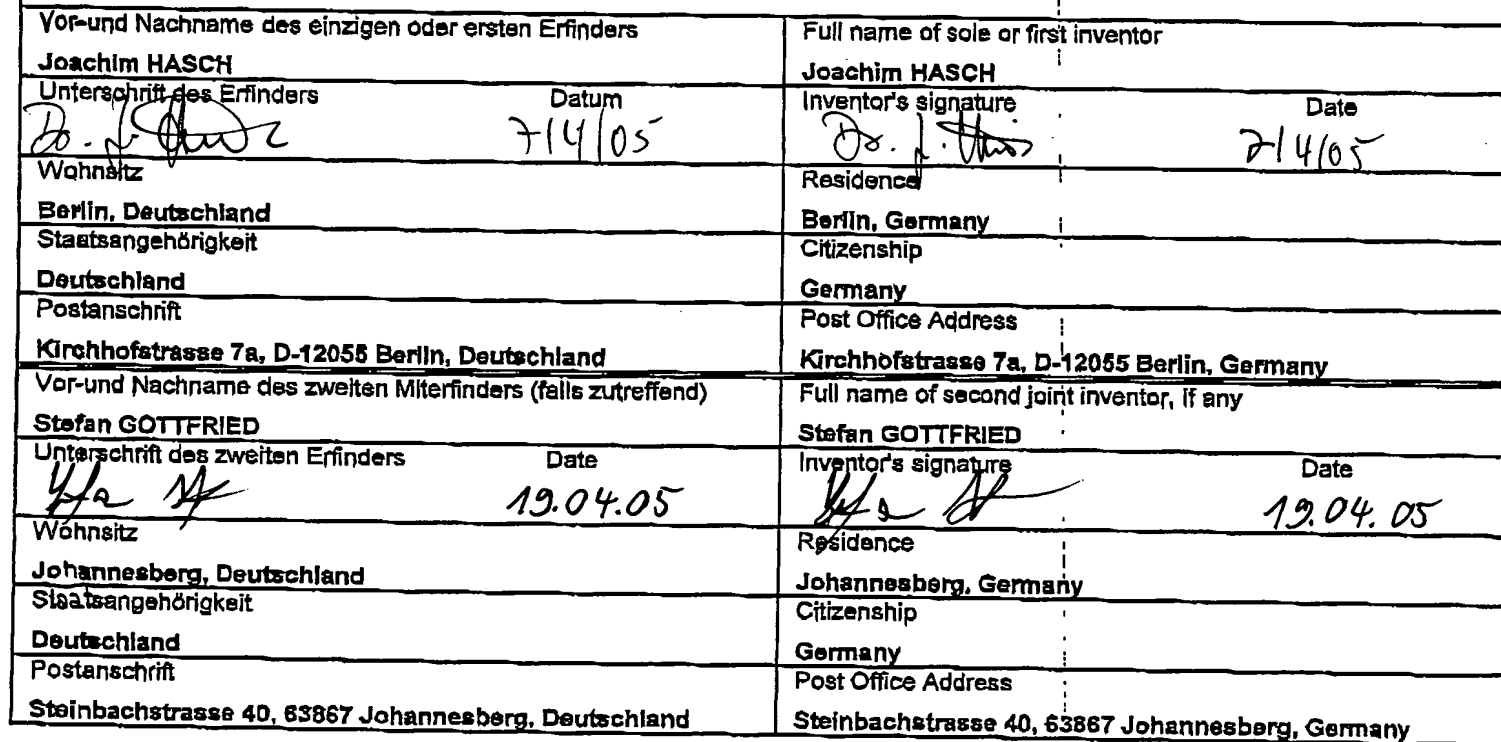 Vor-und Nachname des einzigen oder ersten Erfinders
Joachim HASCH
Unterschrift des Erfinders Datum
7/4/05
Wohnsitz
Berlin, Deutschland
Staatsangehörigkeit
Deutschland
Postanschrift
Kirchhofstrasse 7a, D-12055 Berlin, Deutschland
Vor-und Nachname des zweiten Miterfinders (falls zutreffend)
Stefan GOTTFRIED
Unterschrift des zweiten Erfinders Date
19.04.05
Wohnsitz
Johannesberg, Deutschland
Staatsangehörigkeit
Deutschland
Postanschrift
Steinbachstrasse 40, 63867 Johannesberg, Deutschland
Full name of sole or first inventor
Joachim HASCH
Inventor's signature Date
7/4/05
Residence
Berlin, Germany
Citizenship
Germany
Post Office Address
Kirchhofstrasse 7a, D-12055 Berlin, Germany
Full name of second joint inventor, if any
Stefan GOTTFRIED
Inventor's signature Date
19.04.05
Residence
Johannesberg, Germany
Citizenship
Germany
Post Office Address
Steinbachstrasse 40, 63867 Johannesberg, Germany